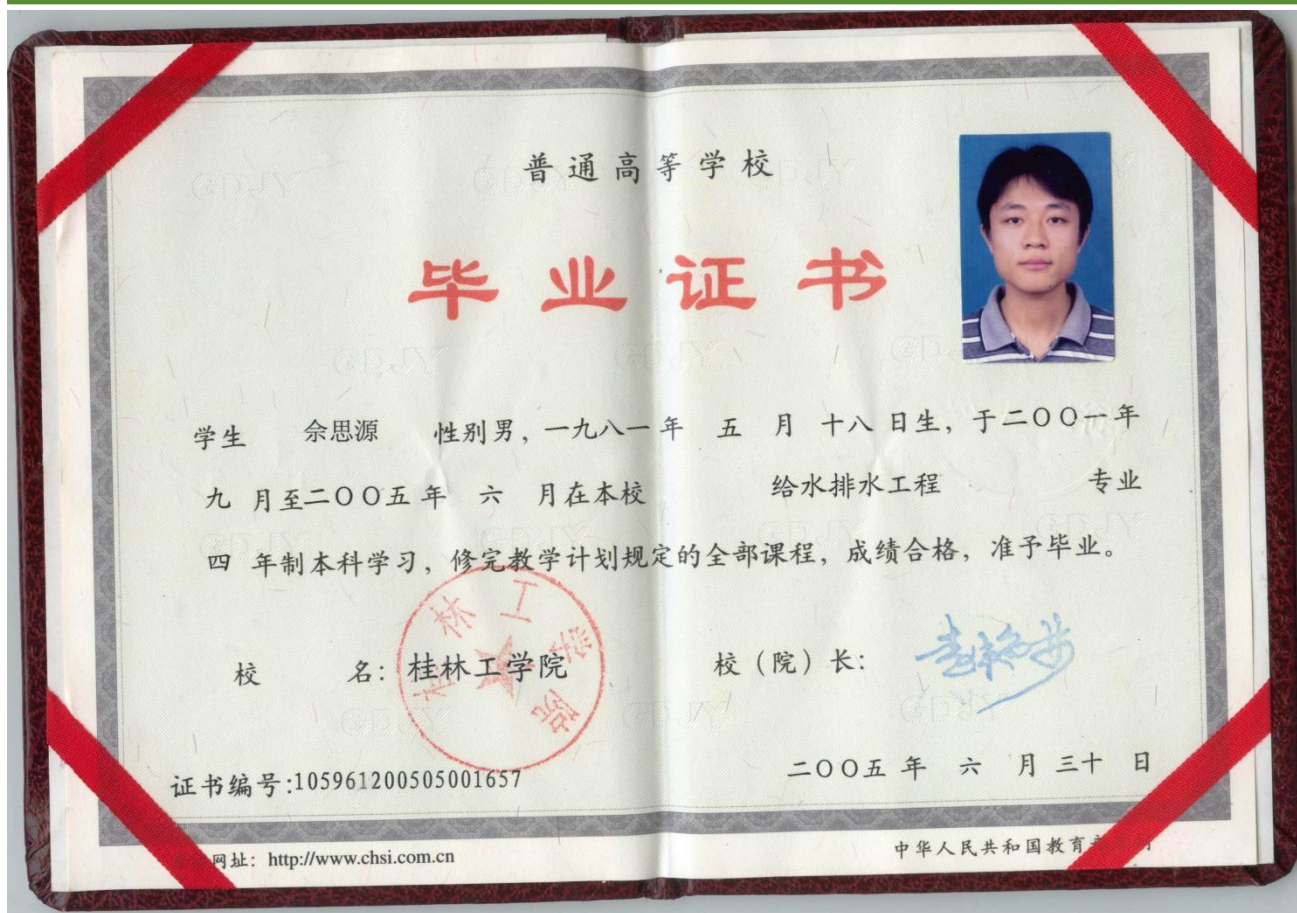 普通高等学校
毕业证书
学生 佘思源 性别男，一九八一年 五 月 十八 日生，于二〇〇一年
九 月至二〇〇五年 六 月在本校 给水排水工程 专业
四 年制本科学习，修完教学计划规定的全部课程，成绩合格，准予毕业。
校 名：桂林工学院
校（院）长：
桂林工学院
二〇〇五 年 六 月 三十 日
证书编号:105961200505001657
网址：http://www.chsi.com.cn
中华人民共和国教育
GDJY